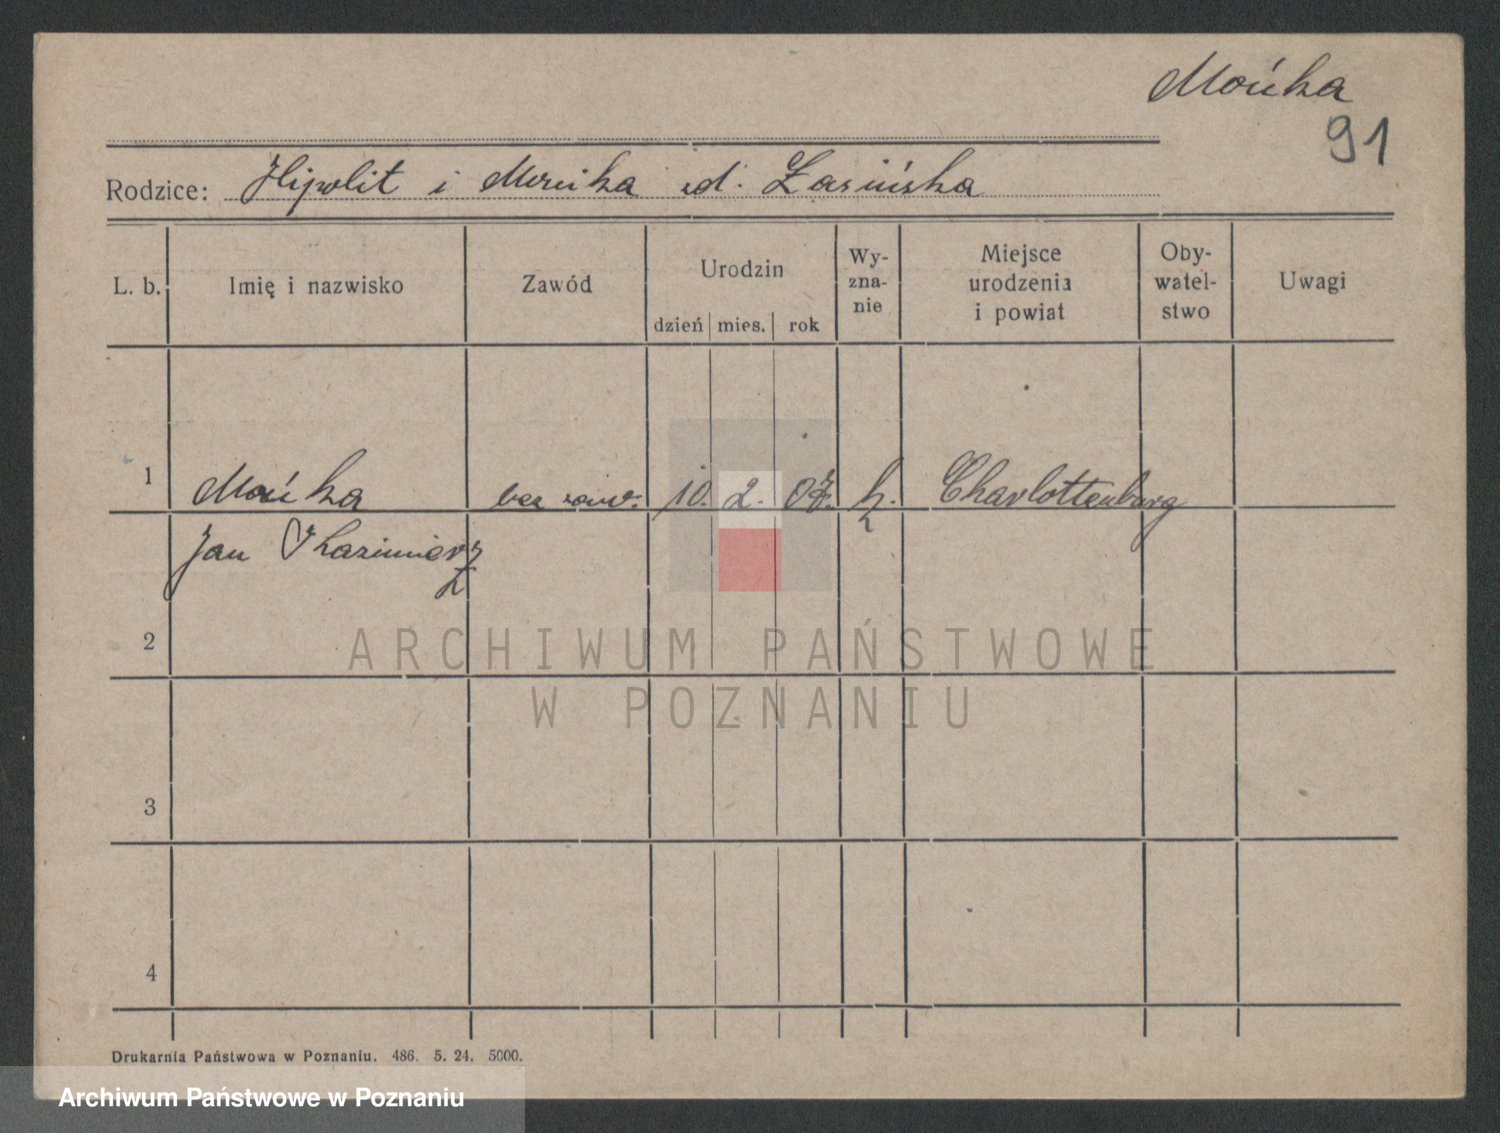 Mońka
91
Rodzice: Hipolit i Monika zd. Łasińska
L. b. Imię i nazwisko Zawód Urodzin dzień mies. rok Wy-zna-nie Miejsce urodzenia i powiat Oby-watel-stwo Uwagi
1 Mońka bez zaw. 10. 2. 07. k. Charlottenburg
Jan Kazimierz
2
ARCHIWUM PAŃSTWOWE
W POZNANIU
3
4
Drukarnia Państwowa w Poznaniu. 486. 5. 24. 5000.
Archiwum Państwowe w Poznaniu